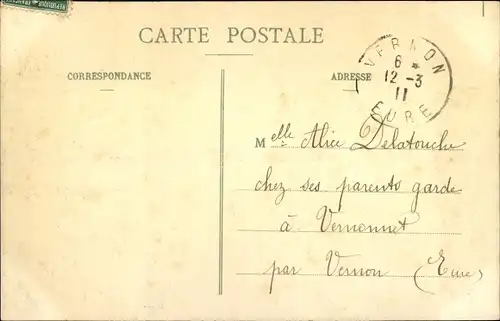 RÉPUBLIQUE FRANÇAISE
CARTE POSTALE
CORRESPONDANCE
ADRESSE
VERNON
6 *
12 - 3
11
EURE
Melle Alice Delatouche
chez ses parents garde
à Vernonnet
par Vernon (Eure)